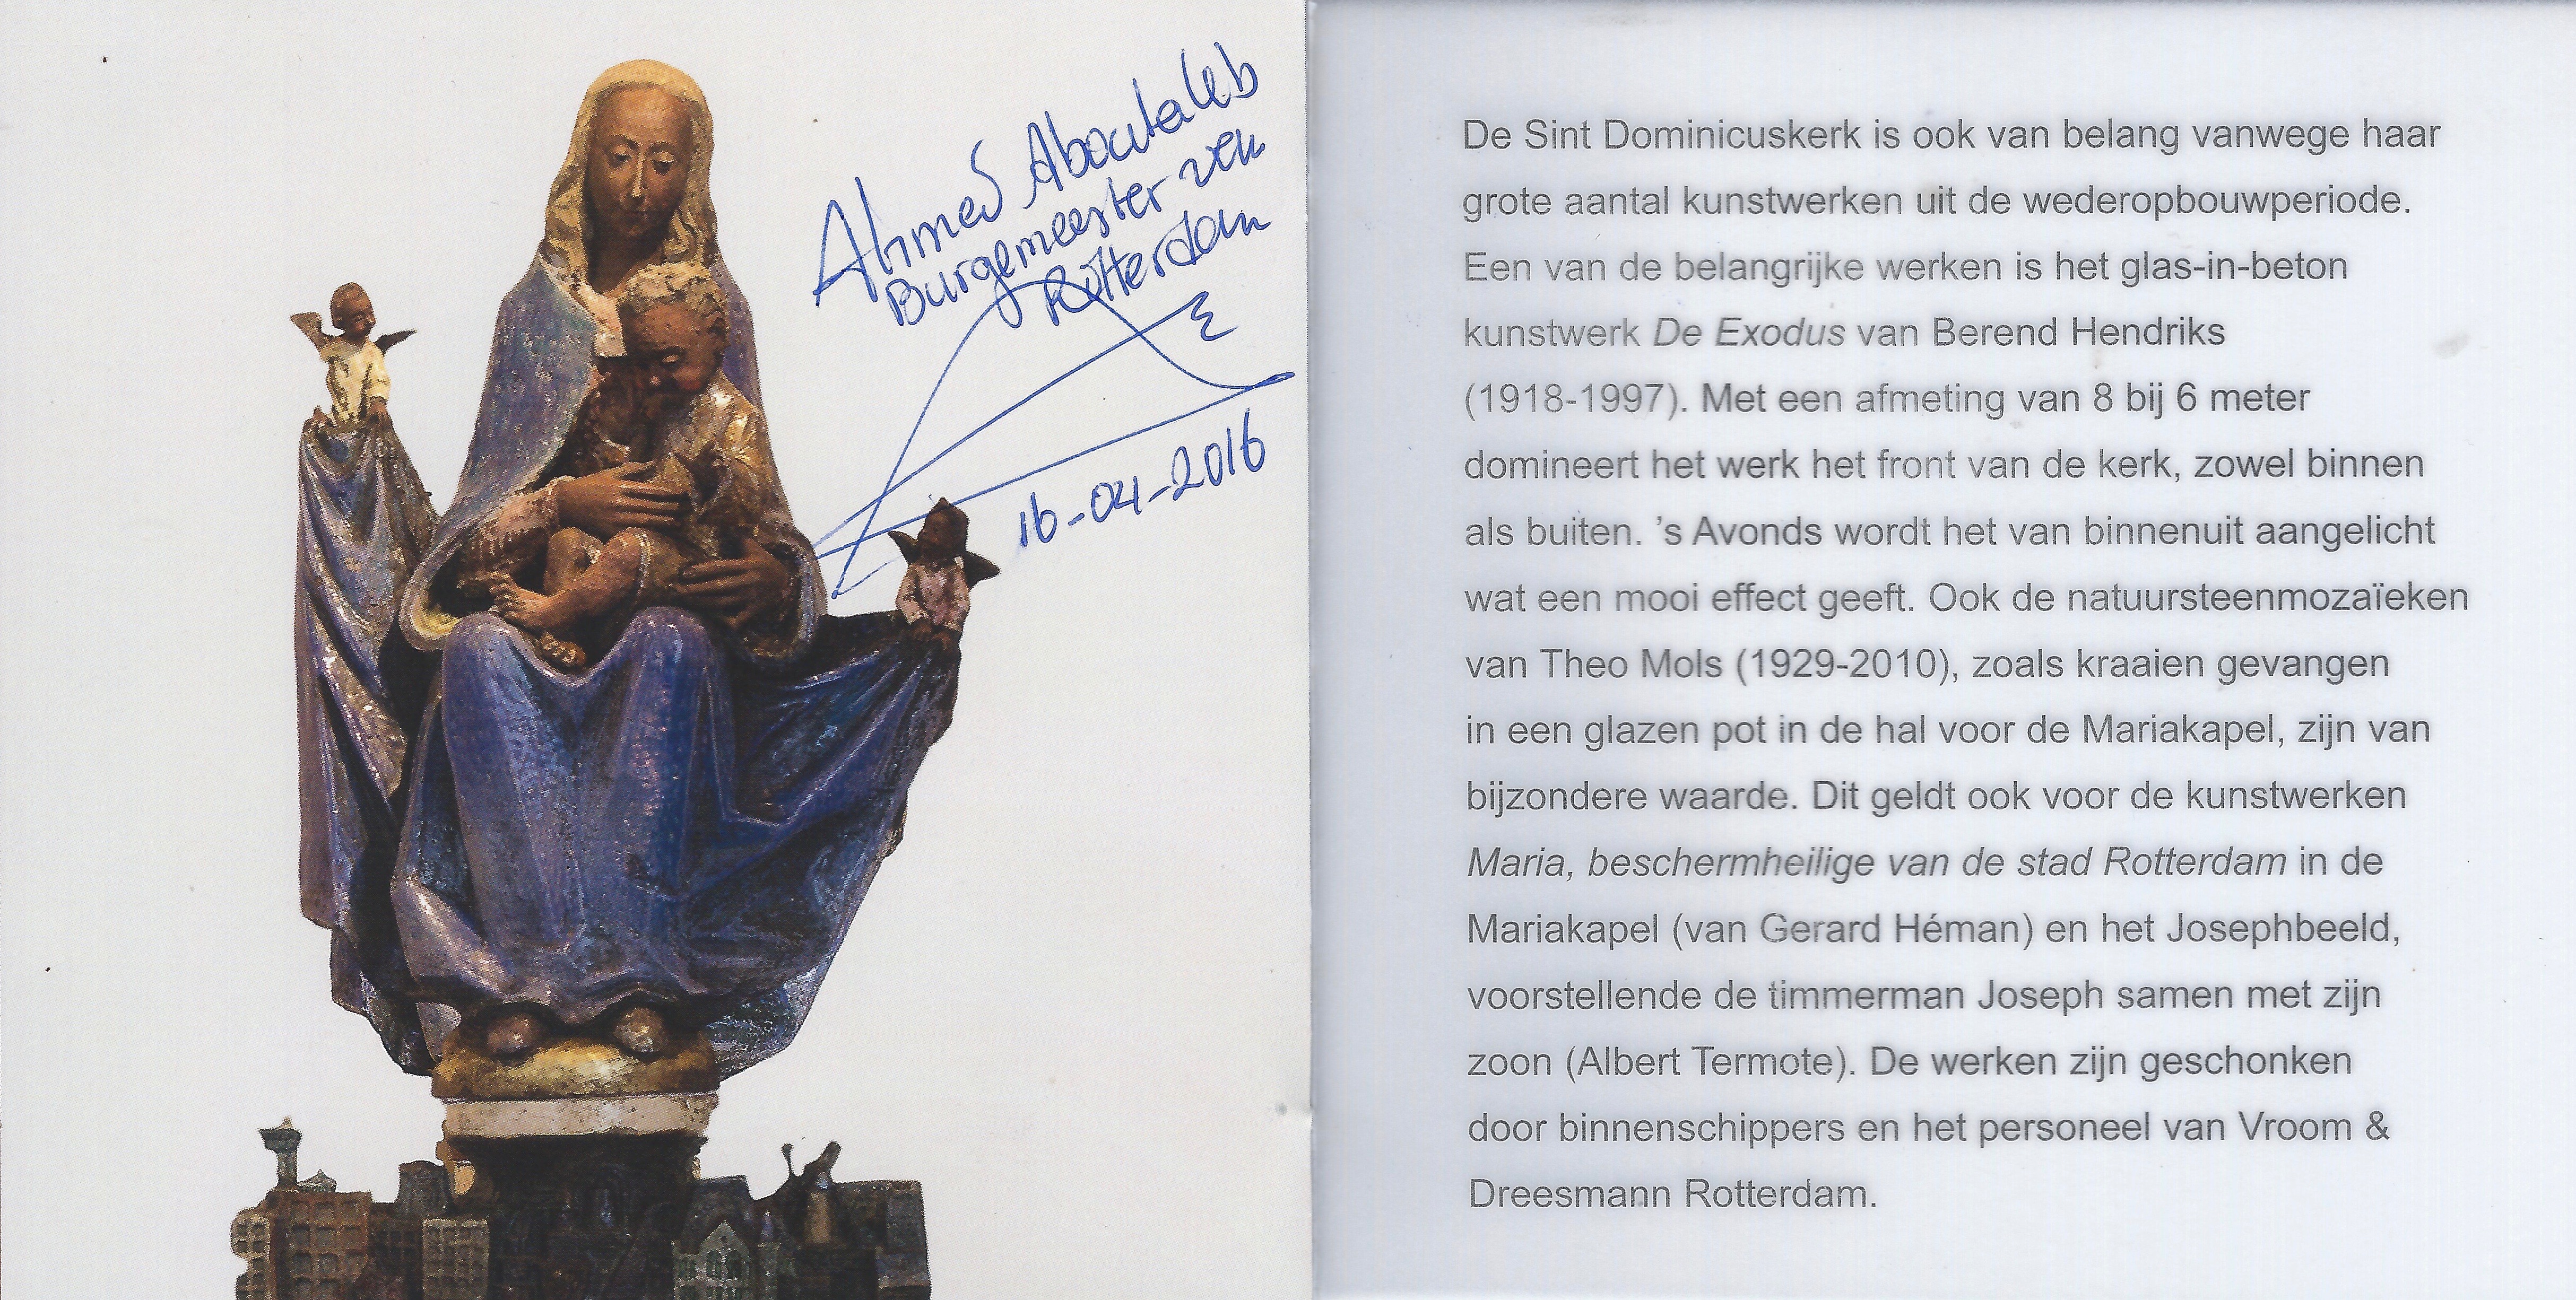 Ahmed Aboutaleb
Burgemeester van
Rotterdam
16-04-2016
De Sint Dominicuskerk is ook van belang vanwege haar
grote aantal kunstwerken uit de wederopbouwperiode.
Een van de belangrijke werken is het glas-in-beton
kunstwerk De Exodus van Berend Hendriks
(1918-1997). Met een afmeting van 8 bij 6 meter
domineert het werk het front van de kerk, zowel binnen
als buiten. ’s Avonds wordt het van binnenuit aangelicht
wat een mooi effect geeft. Ook de natuursteenmozaïeken
van Theo Mols (1929-2010), zoals kraaien gevangen
in een glazen pot in de hal voor de Mariakapel, zijn van
bijzondere waarde. Dit geldt ook voor de kunstwerken
Maria, beschermheilige van de stad Rotterdam in de
Mariakapel (van Gerard Héman) en het Josephbeeld,
voorstellende de timmerman Joseph samen met zijn
zoon (Albert Termote). De werken zijn geschonken
door binnenschippers en het personeel van Vroom &
Dreesmann Rotterdam.